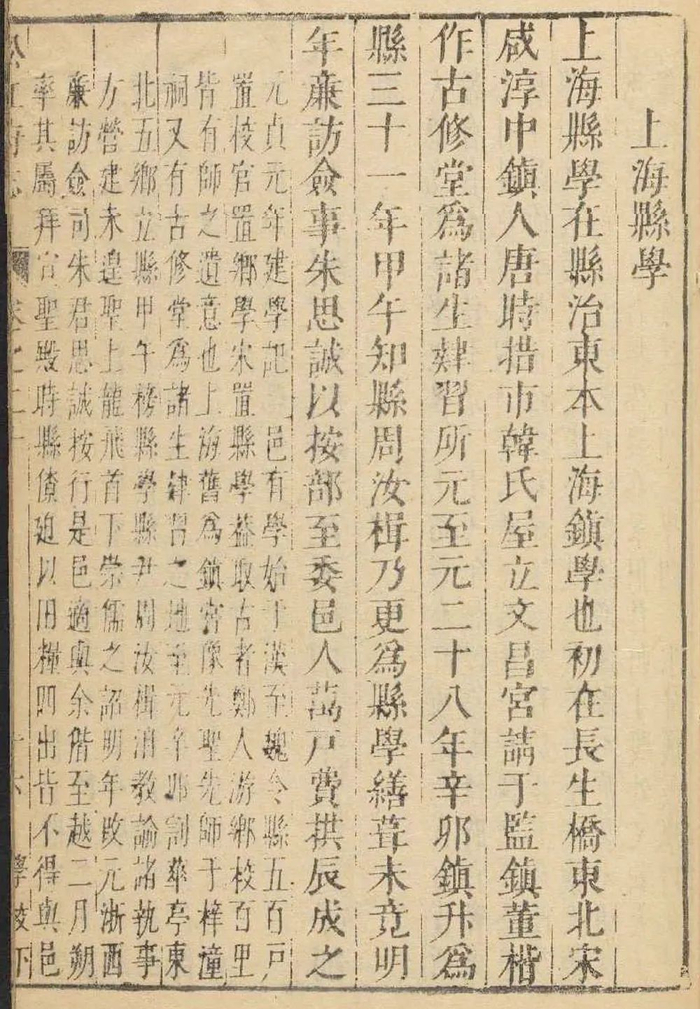 上海縣學
上海縣學在縣治東本上海鎮學也初在長生橋東北宋
咸淳中鎮人唐時措市韓氏屋立文昌宮請于監鎮董楷
作古修堂爲諸生肄習所元至元二十八年辛卯鎮升爲
縣三十一年甲午知縣周汝楫乃更爲縣學繕葺未竟明
年廉訪僉事朱思誠以按部至委邑人萬戶費拱辰成之
元貞元年建學記 邑有學始于漢至魏令縣五百戶
置校官置鄉學宋置縣學益取古者鄭人游鄉校百里
皆有師之遺意也上海舊爲鎮宮像先聖先師于梓潼
祠又有古修堂爲諸生肄習之地至元辛卯割華亭東
北五鄉立縣甲午榜縣學縣尹周汝楫洎教諭諸執事
方營建未遑聖上龍飛首下崇儒之詔明年改元浙西
廉訪僉司朱君思誠按行是邑適與余偕至越二月朔
率其屬拜宣聖殿時縣僚迫以田糧四出皆不得與邑
松江府志 卷之二十 十六 學校下